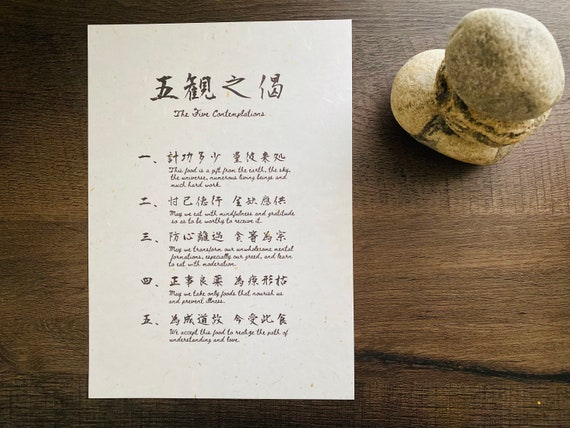 五観之偈
The Five Contemplations
一、計功多少 量彼来処
This food is a gift from the earth, the sky,
the universe, numerous living beings and
much hard work.
二、忖己徳行 全缺應供
May we eat with mindfulness and gratitude
so as to be worthy to receive it.
三、防心離過 貪等為宗
May we transform our unwholesome mental
formations, especially our greed, and learn
to eat with moderation.
四、正事良薬 為療形枯
May we take only foods that nourish us
and prevent illness.
五、為成道故 今受此食
We accept this food to realize the path of
understanding and love.